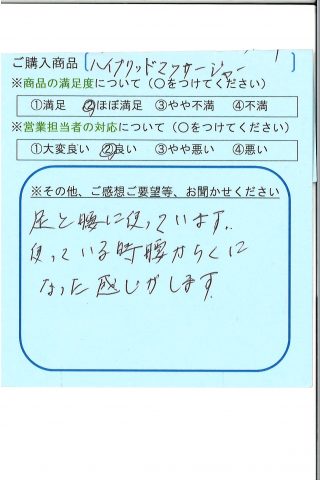 ご購入商品〔ハイブリッドマッサージャー〕
※商品の満足度について(○をつけてください)
①満足 ②ほぼ満足 ③やや不満 ④不満
※営業担当者の対応について(○をつけてください)
①大変良い ②良い ③やや悪い ④悪い
※その他、ご感想ご要望等、お聞かせください
足と腰に使っています。
使っている時腰がらくに
なった感じがします